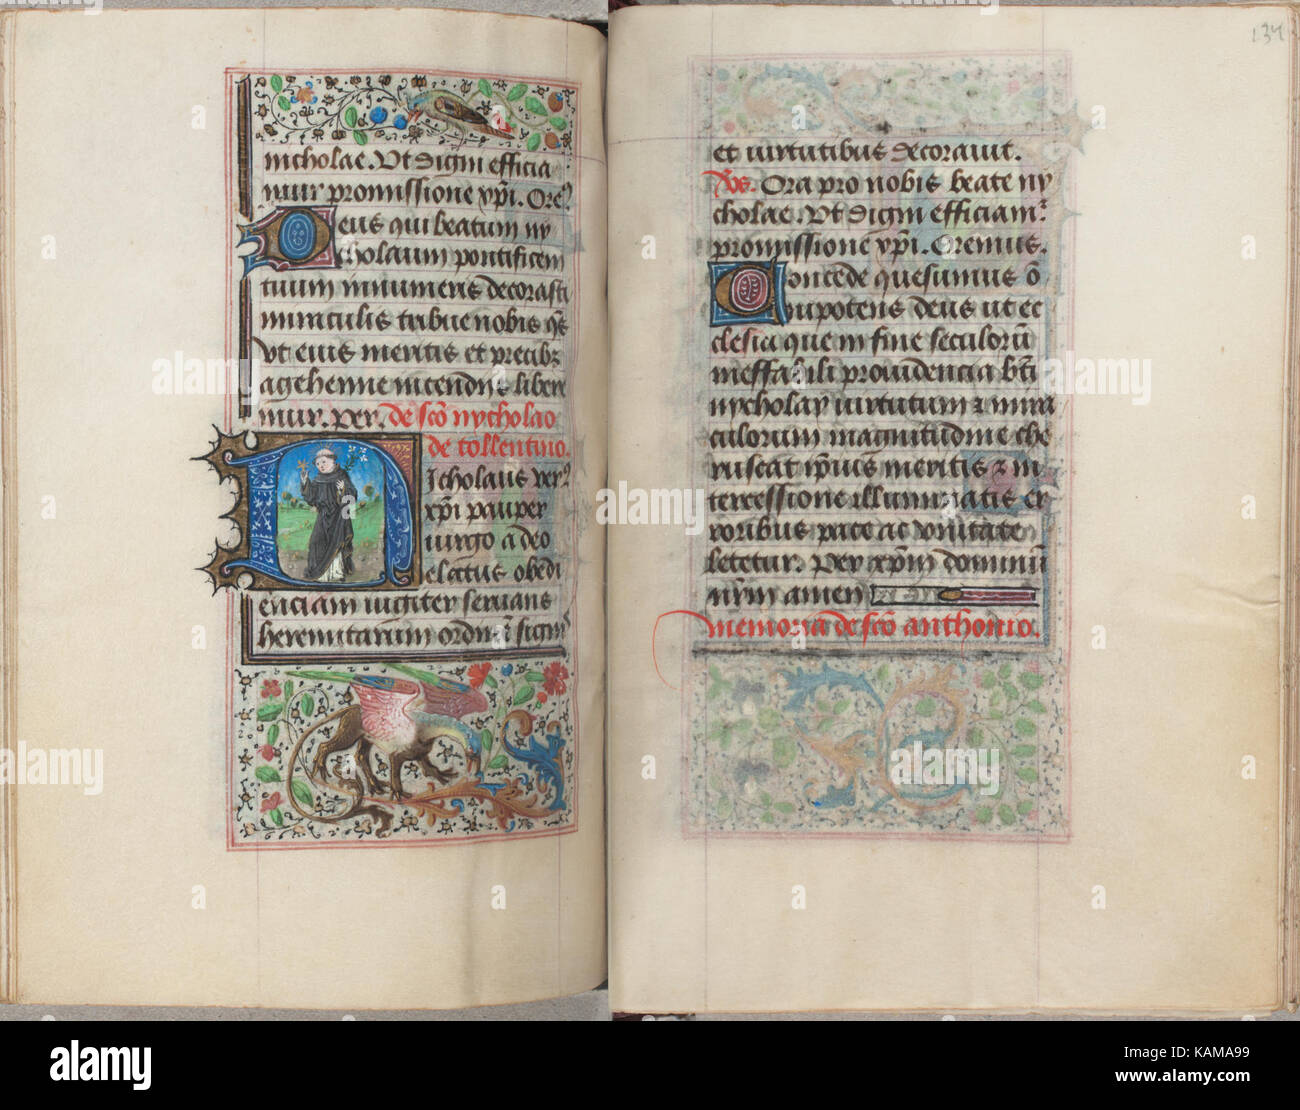 nicholae. Vt digni efficia
mur promissione xpi. Ore
Deus qui beatum ny
cholaum pontificem
tuum innumeris decorasti
miraculis tribue nobis qs
vt eius meritis et precibz
a gehenne incendijs libere
mur. per. de sco nycholao
de tollentino.
Nicholaus ver
xpi pauper
uirgo a deo
electus obedi
enciam iugiter seruans
heremitarum
134
et uirtutibus decorauit.
Vs. Ora pro nobis beate ny
cholae. Vt digni efficiam
promissione xpi. Oremus.
Concede quesumus o
mnipotens deus ut ec
clesia que in fine seculoru
ineffabili prouidencia bti
nycholay uirtutum et mira
culorum magnitudine cho
ruscat ipsius meritis et in
tercessione illuminatis er
roribus pace ac vnitate
letetur. Per xpm dominu
nrm amen
memoria de sco anthonio.
alamy
Image ID: KAMA99
www.alamy.com